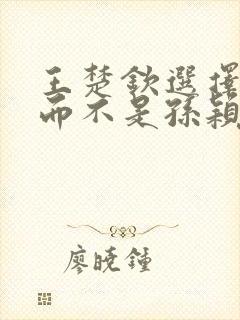 王楚欽選擇
而不是孫穎
廖曉鍾